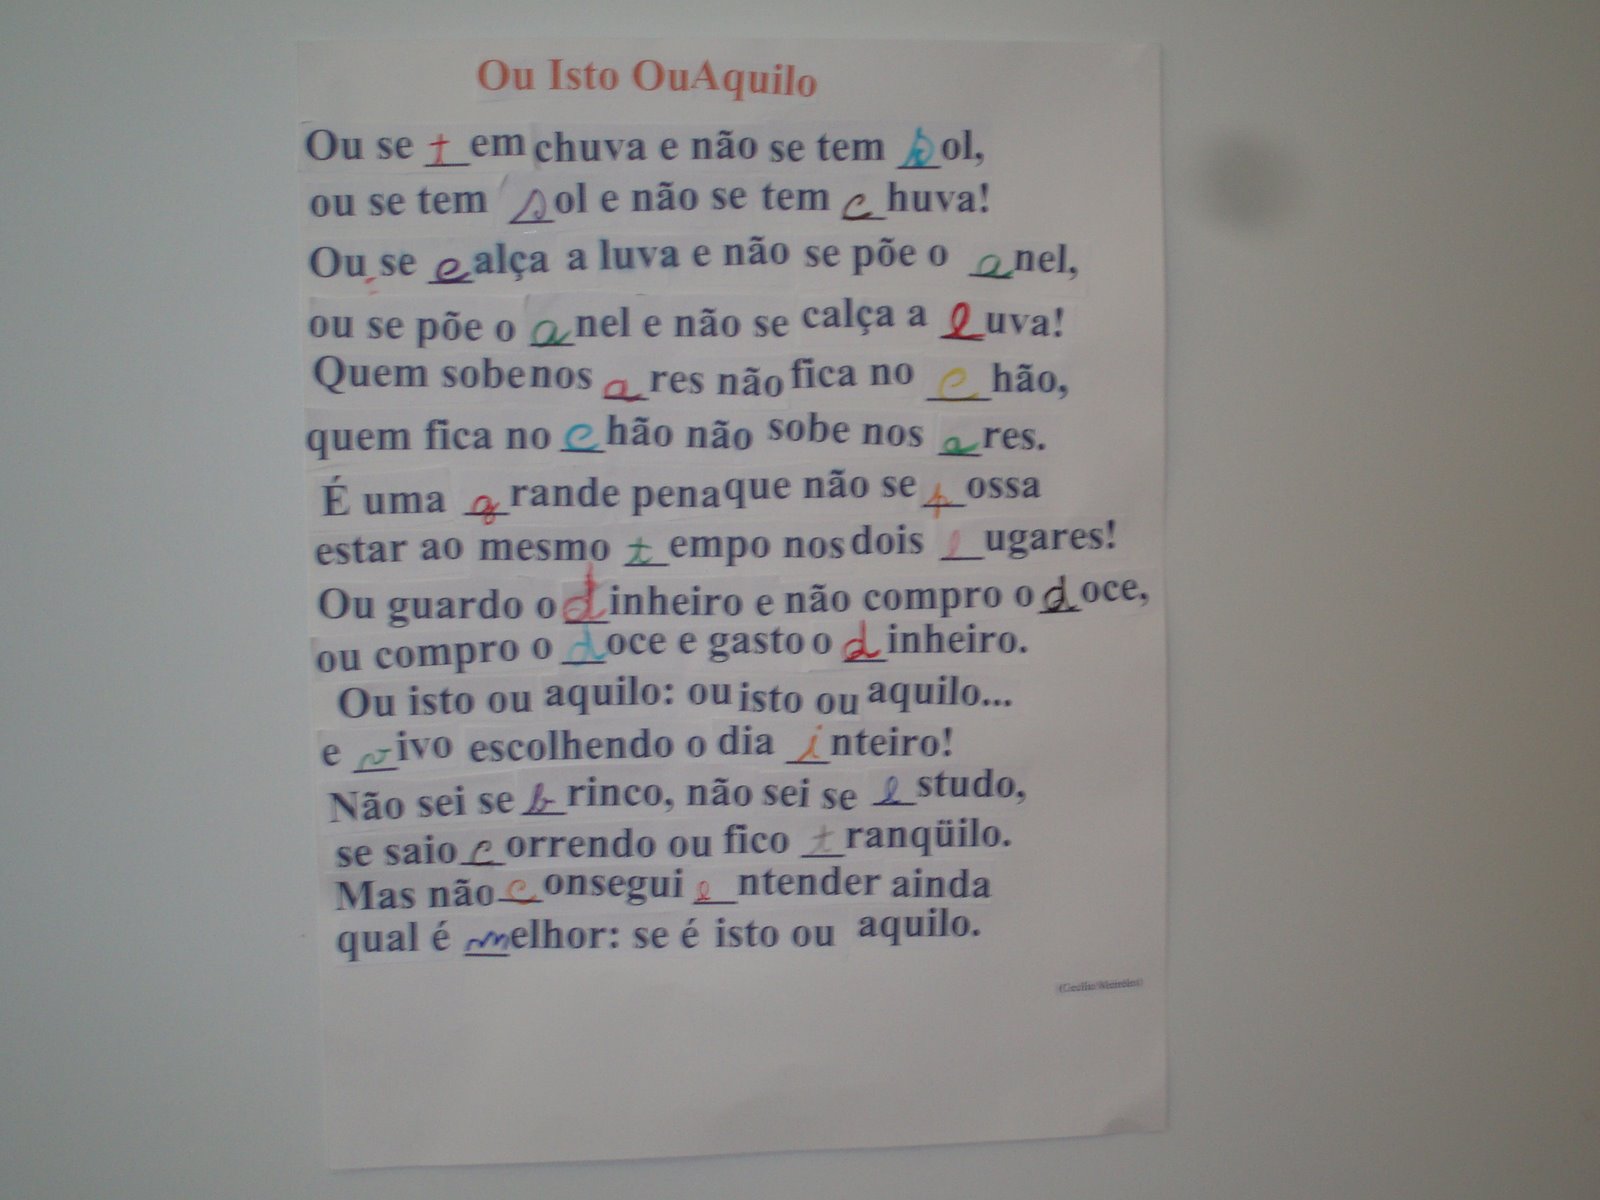 Ou Isto OuAquilo
Ou se tem chuva e não se tem sol,
ou se tem sol e não se tem chuva!
Ou se calça a luva e não se põe o anel,
ou se põe o anel e não se calça a luva!
Quem sobe nos ares não fica no chão,
quem fica no chão não sobe nos ares.
É uma grande pena que não se possa
estar ao mesmo tempo nos dois lugares!
Ou guardo o dinheiro e não compro o doce,
ou compro o doce e gasto o dinheiro.
Ou isto ou aquilo: ou isto ou aquilo...
e vivo escolhendo o dia inteiro!
Não sei se brinco, não sei se estudo,
se saio correndo ou fico tranqüilo.
Mas não consegui entender ainda
qual é melhor: se é isto ou aquilo.
(Cecília Meireles)